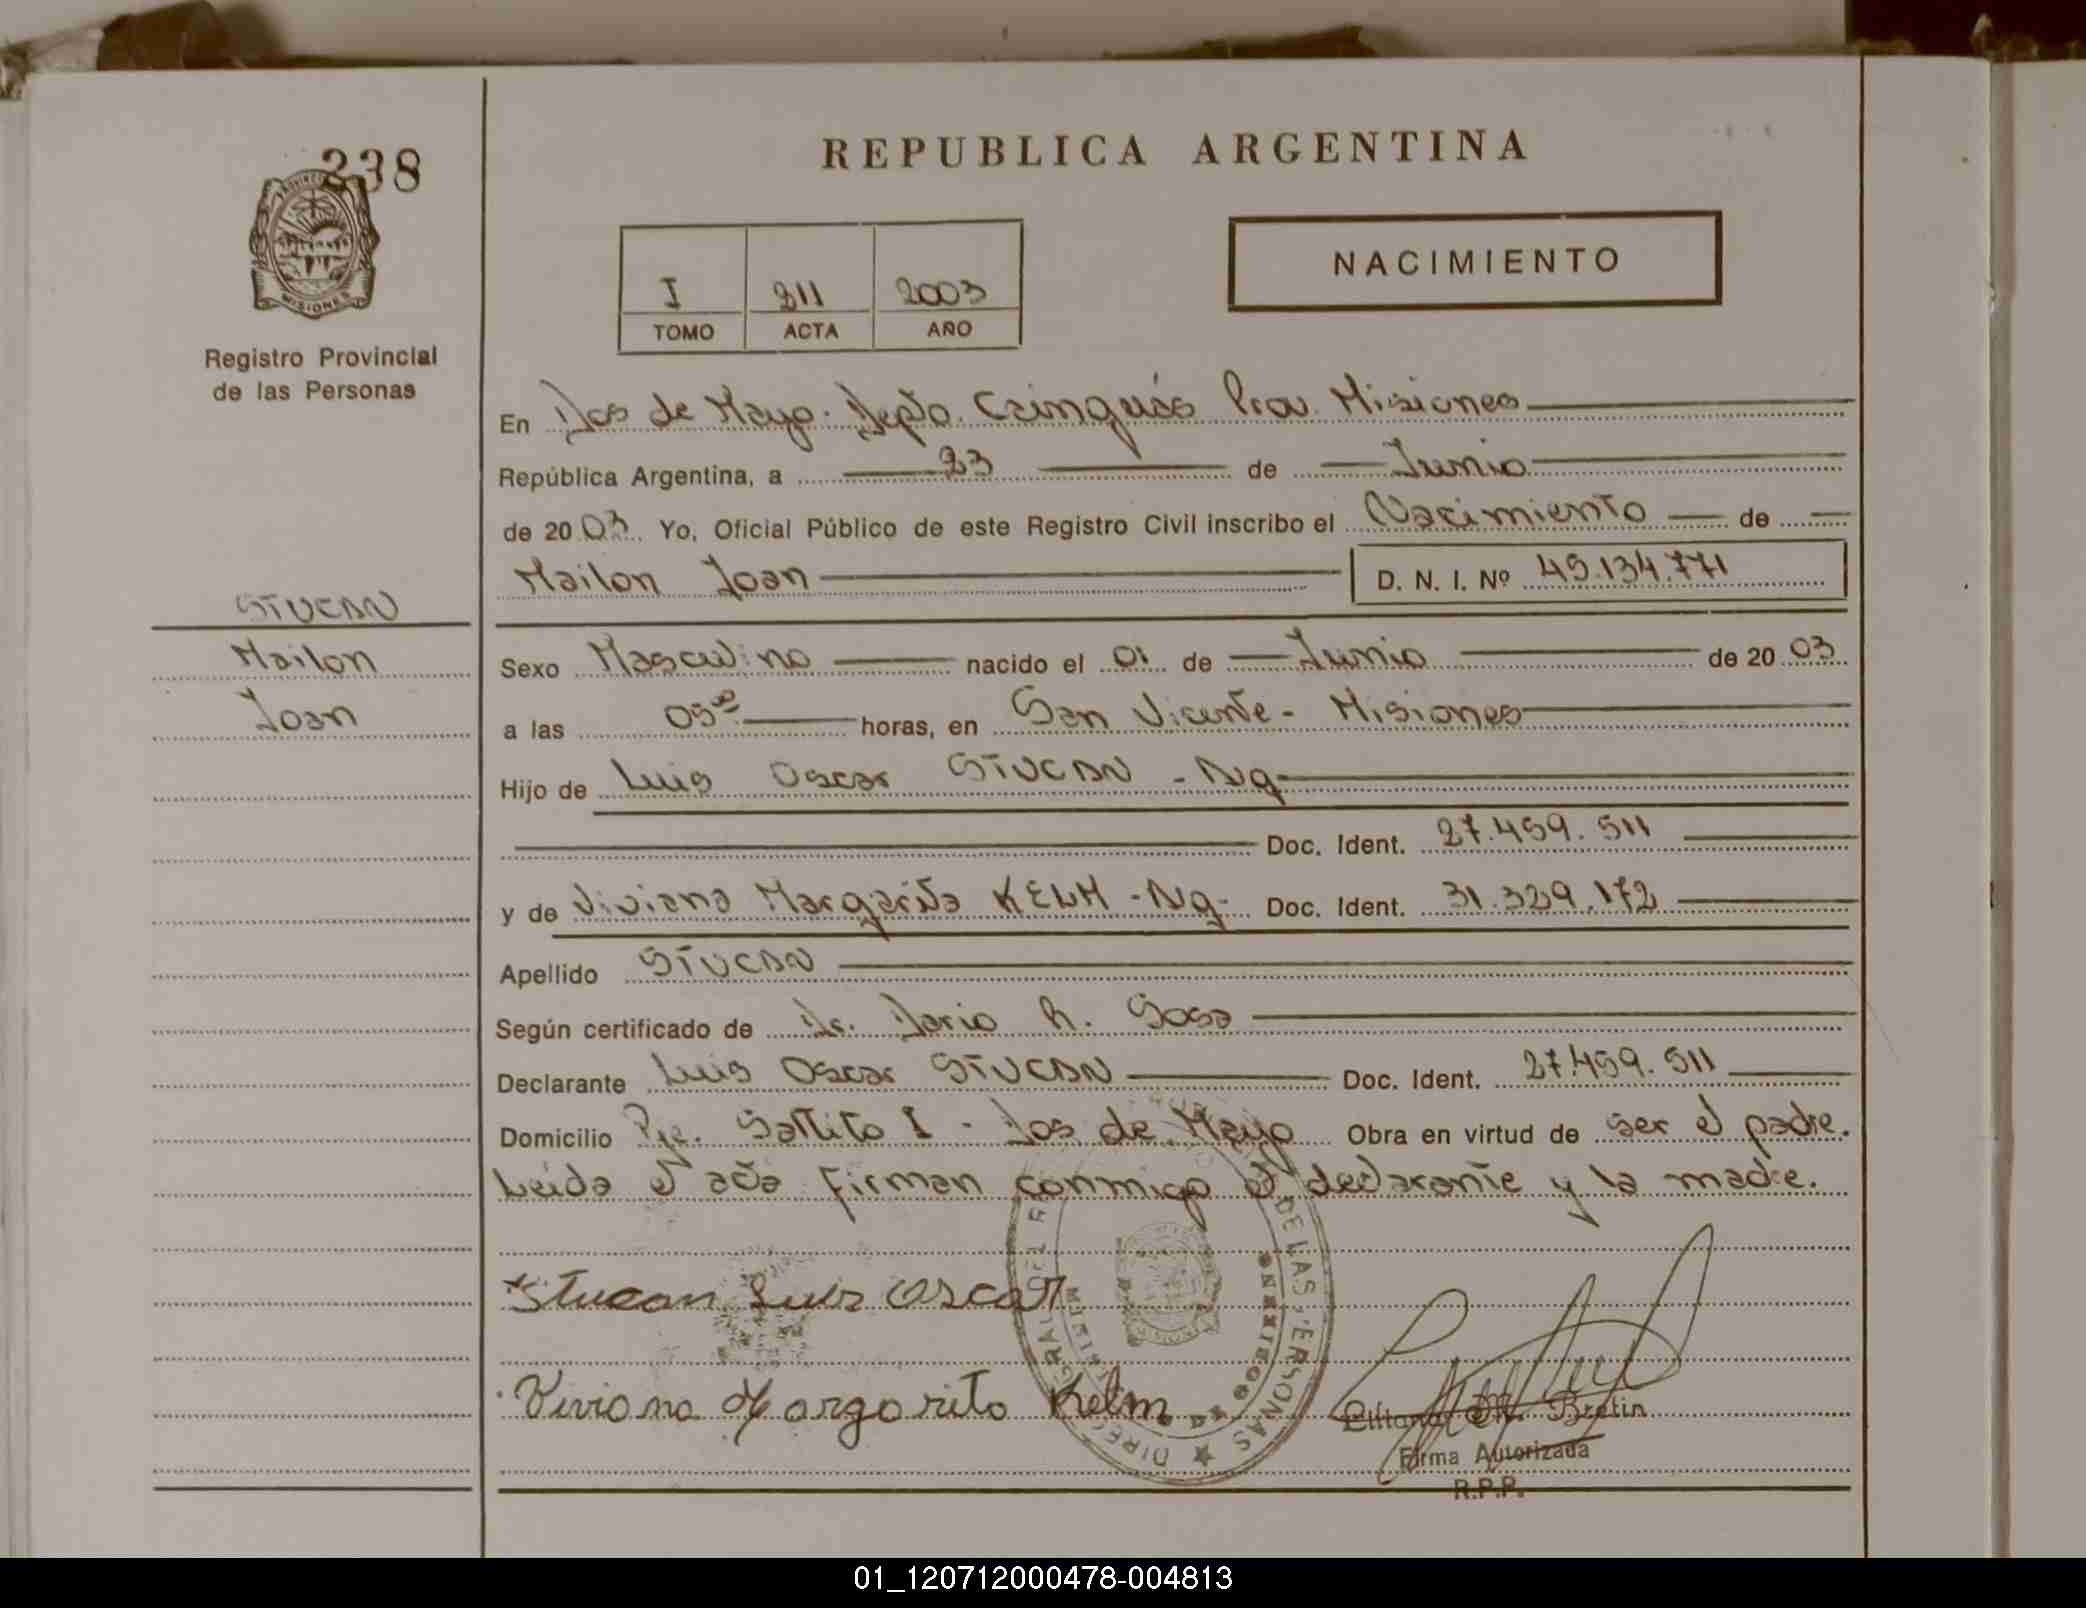 238
REPUBLICA ARGENTINA
PROVINCIA
MISIONES
Registro Provincial
de las Personas
I 211 2003
TOMO ACTA AÑO
NACIMIENTO
En Dos de Mayo. Depto. Cainguás Prov. Misiones
República Argentina, a 23 de Junio
de 2003. Yo, Oficial Público de este Registro Civil inscribo el Nacimiento de
Mailon Joan D. N. I. Nº 45.134.771
STUCAN
Mailon
Joan
Sexo Masculino nacido el 01 de Junio de 2003
a las 05 horas, en San Vicente - Misiones
Hijo de Luis Oscar STUCAN - Ng
Doc. Ident. 27.459.511
y de Viviana Margarita KELM - Ng - Doc. Ident. 31.329.172
Apellido STUCAN
Según certificado de Dr. Dario R. Sosa
Declarante Luis Oscar STUCAN Doc. Ident. 27.459.511
Domicilio Pje. Saltito I - Dos de Mayo Obra en virtud de ser el padre.
Leida el acta firman conmigo el declarante y la madre.
Stucan Luis Oscar
Viviana Margarita Kelm
DE LAS PERSONAS
MISIONES
Bretin
Firma Autorizada
R.P.P.
01_120712000478-004813